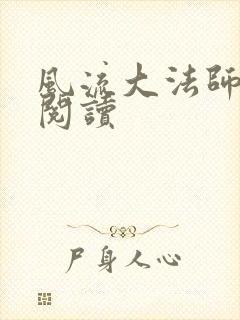 風流大法師
閱讀
尸身人心